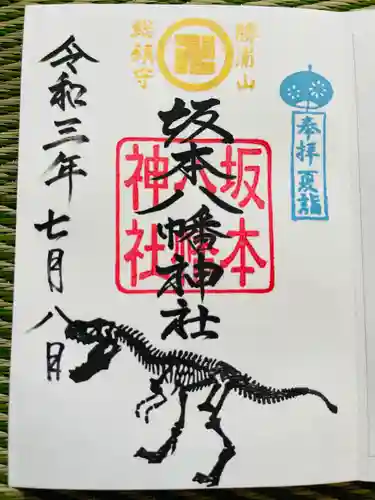 奉拝 夏詣
勝浦山
総鎮守
坂本八幡神社
坂本
八幡
神社
令和三年七月八日